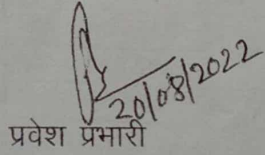 20/08/2022
प्रवेश प्रभारी